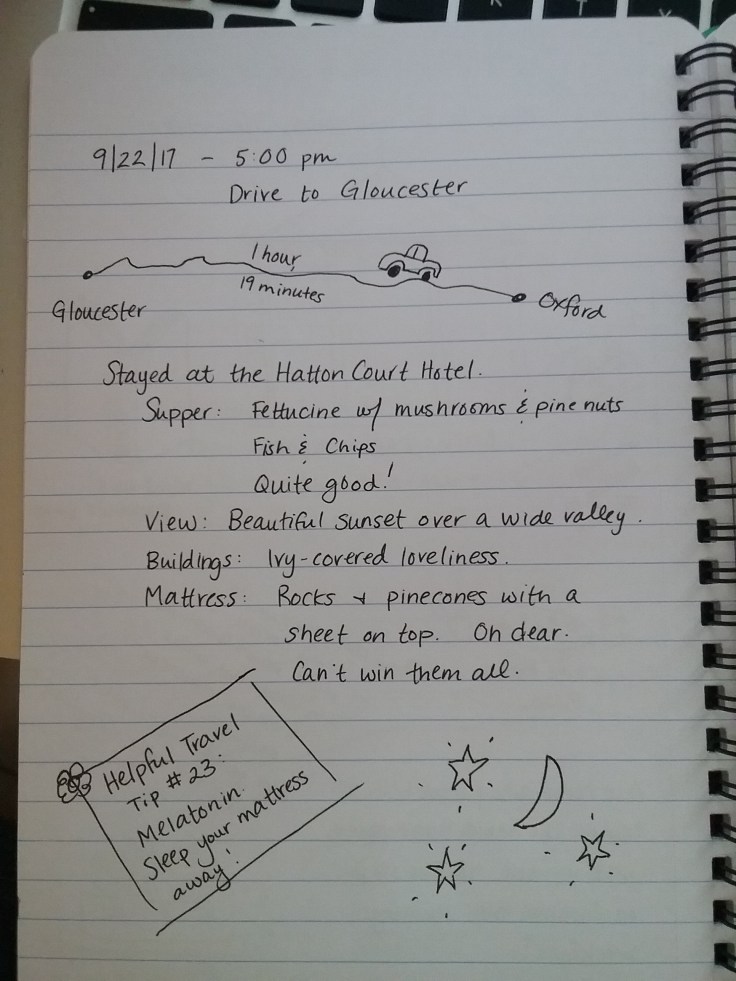 9/22/17 - 5:00 pm
Drive to Gloucester
1 hour,
19 minutes
Gloucester
Oxford
Stayed at the Hatton Court Hotel.
Supper: Fettucine w/ mushrooms & pine nuts
Fish & Chips
Quite good!
View: Beautiful sunset over a wide valley.
Buildings: Ivy-covered loveliness.
Mattress: Rocks & pinecones with a
sheet on top. Oh dear.
Can't win them all.
Helpful Travel
Tip #23:
Melatonin.
Sleep your mattress
away!